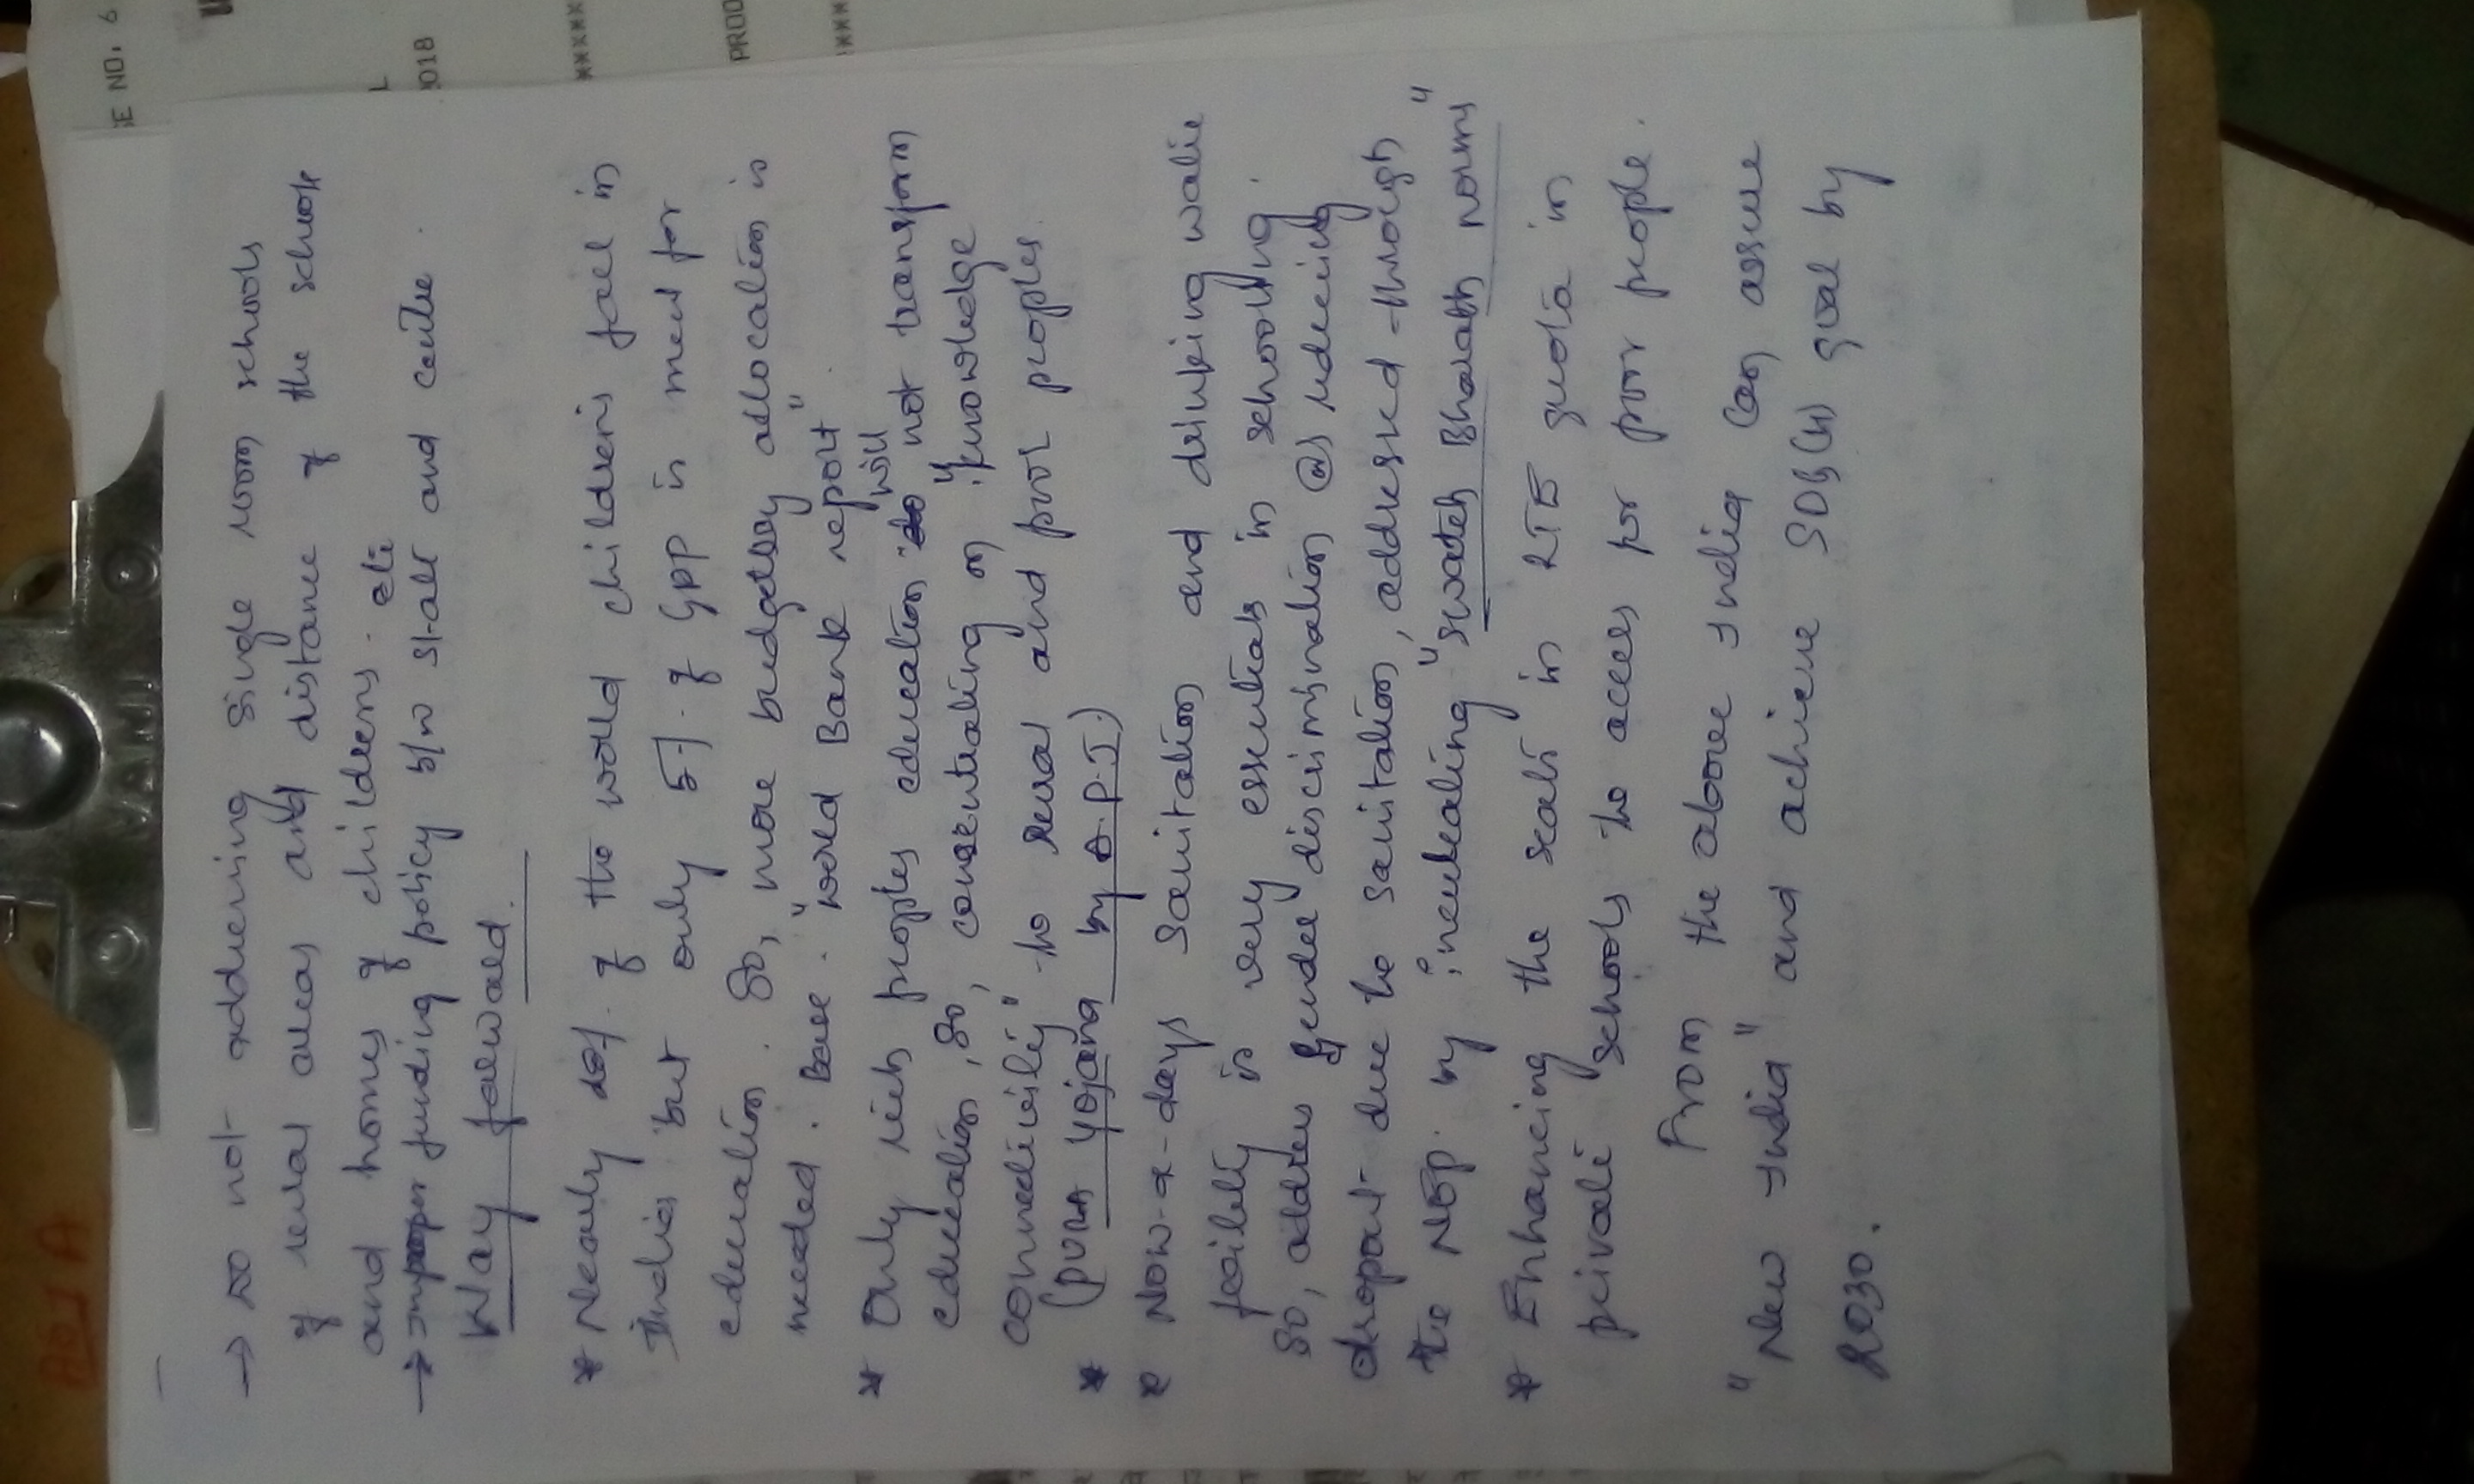 → Do not addressing single room schools
of rural areas and distance of the school
and homes of childrens. etc
→ improper funding policy b/w state and centre.
Way forward.
* Nearly of the world childrens fail in
Indias but only 5% of GDP is meet for
education. So, more budgetary allocation is
needed. Base. "World Bank report".
* Only rich peoples education do will not transform
education, so, consentrating on "knowledge
connectivity" to rural and poor peoples.
* (PURA Yojana by A.P.J.)
* Now-a-days sanitation and drinking water
facility is very essentials in schooling.
So, address gender discrimination @ reducing
dropout due to sanitation, addressed through
the NEP. by inculcating "swatch Bharath norms"
* Enhancing the seats in RTE quota in
private schools to acces for poor people.
From the above India can assure
"New India" and achieve SDG(4) goal by
2030.
SE NO. 6
2018
*****
PROD